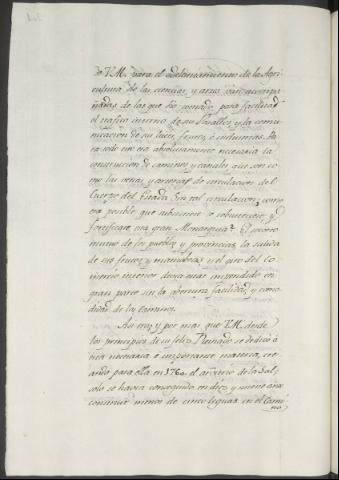 de V.M. para el adelantamiento de la Agri
cultura de las ciencias, y artes van acompa
ñadas de las que ha tomado, para facilitar
el trafico interno de sus Vasallos y la comu
nicacion de sus luces, frutos, e industrias. Pa
ra todo esto era absolutamente necesaria la
construccion de caminos y canales, que son co
mo las venas y arterias de circulacion del
Cuerpo del Estado. Sin tal circulacion, como
era posible que subsistiese, se robusteciese, y
fortificase, esta gran Monarquia? El socorro
mutuo de los pueblos y provincias, la salida
de sus frutos, y maniobras, y el giro del Co
mercio interior devia estar impendido en
gran parte sin la abertura, facilidad, y como
didad de los Caminos.
Asi era, y por mas que V.M. desde
los principios de su feliz Reinado se dedicò à
esta necesaria è importante materia, cre
ando para ella en 1760. el arvitrio de la Sal,
solo se havia conseguido en diez y nueve años
construir menos de cinco leguas en el Cami
no